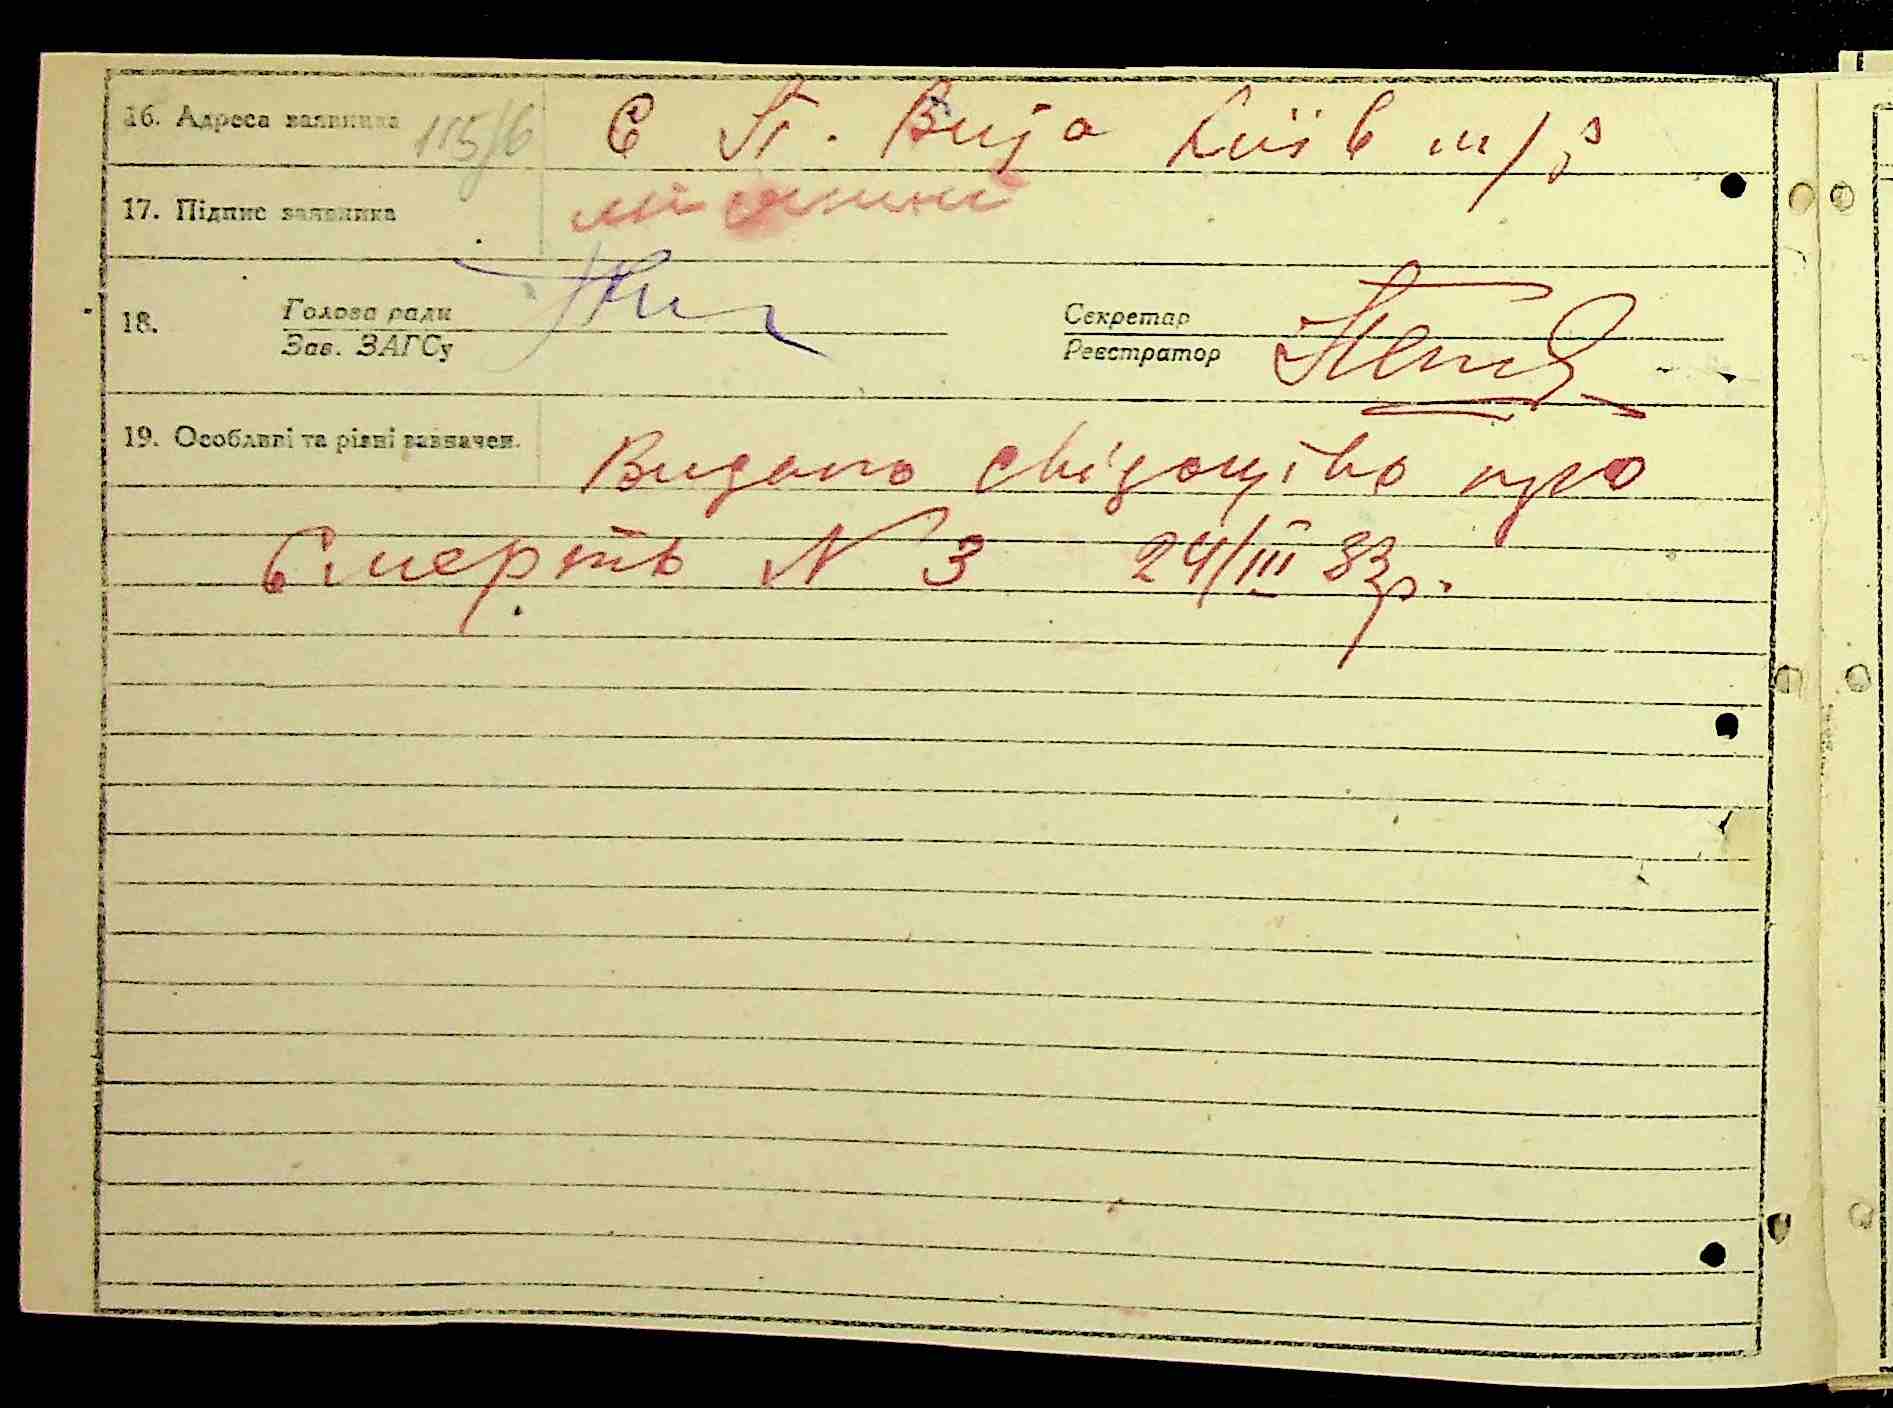 16. Адреса заявника 115/6 С Пт. Буда Київ м/р
17. Підпис заявника
18. Голова ради Секретар
Зав. ЗАГСу Реєстратор
19. Особливі та різні зазначен. Видано свідоцтво про
Смерть N 3 24/III 33р.